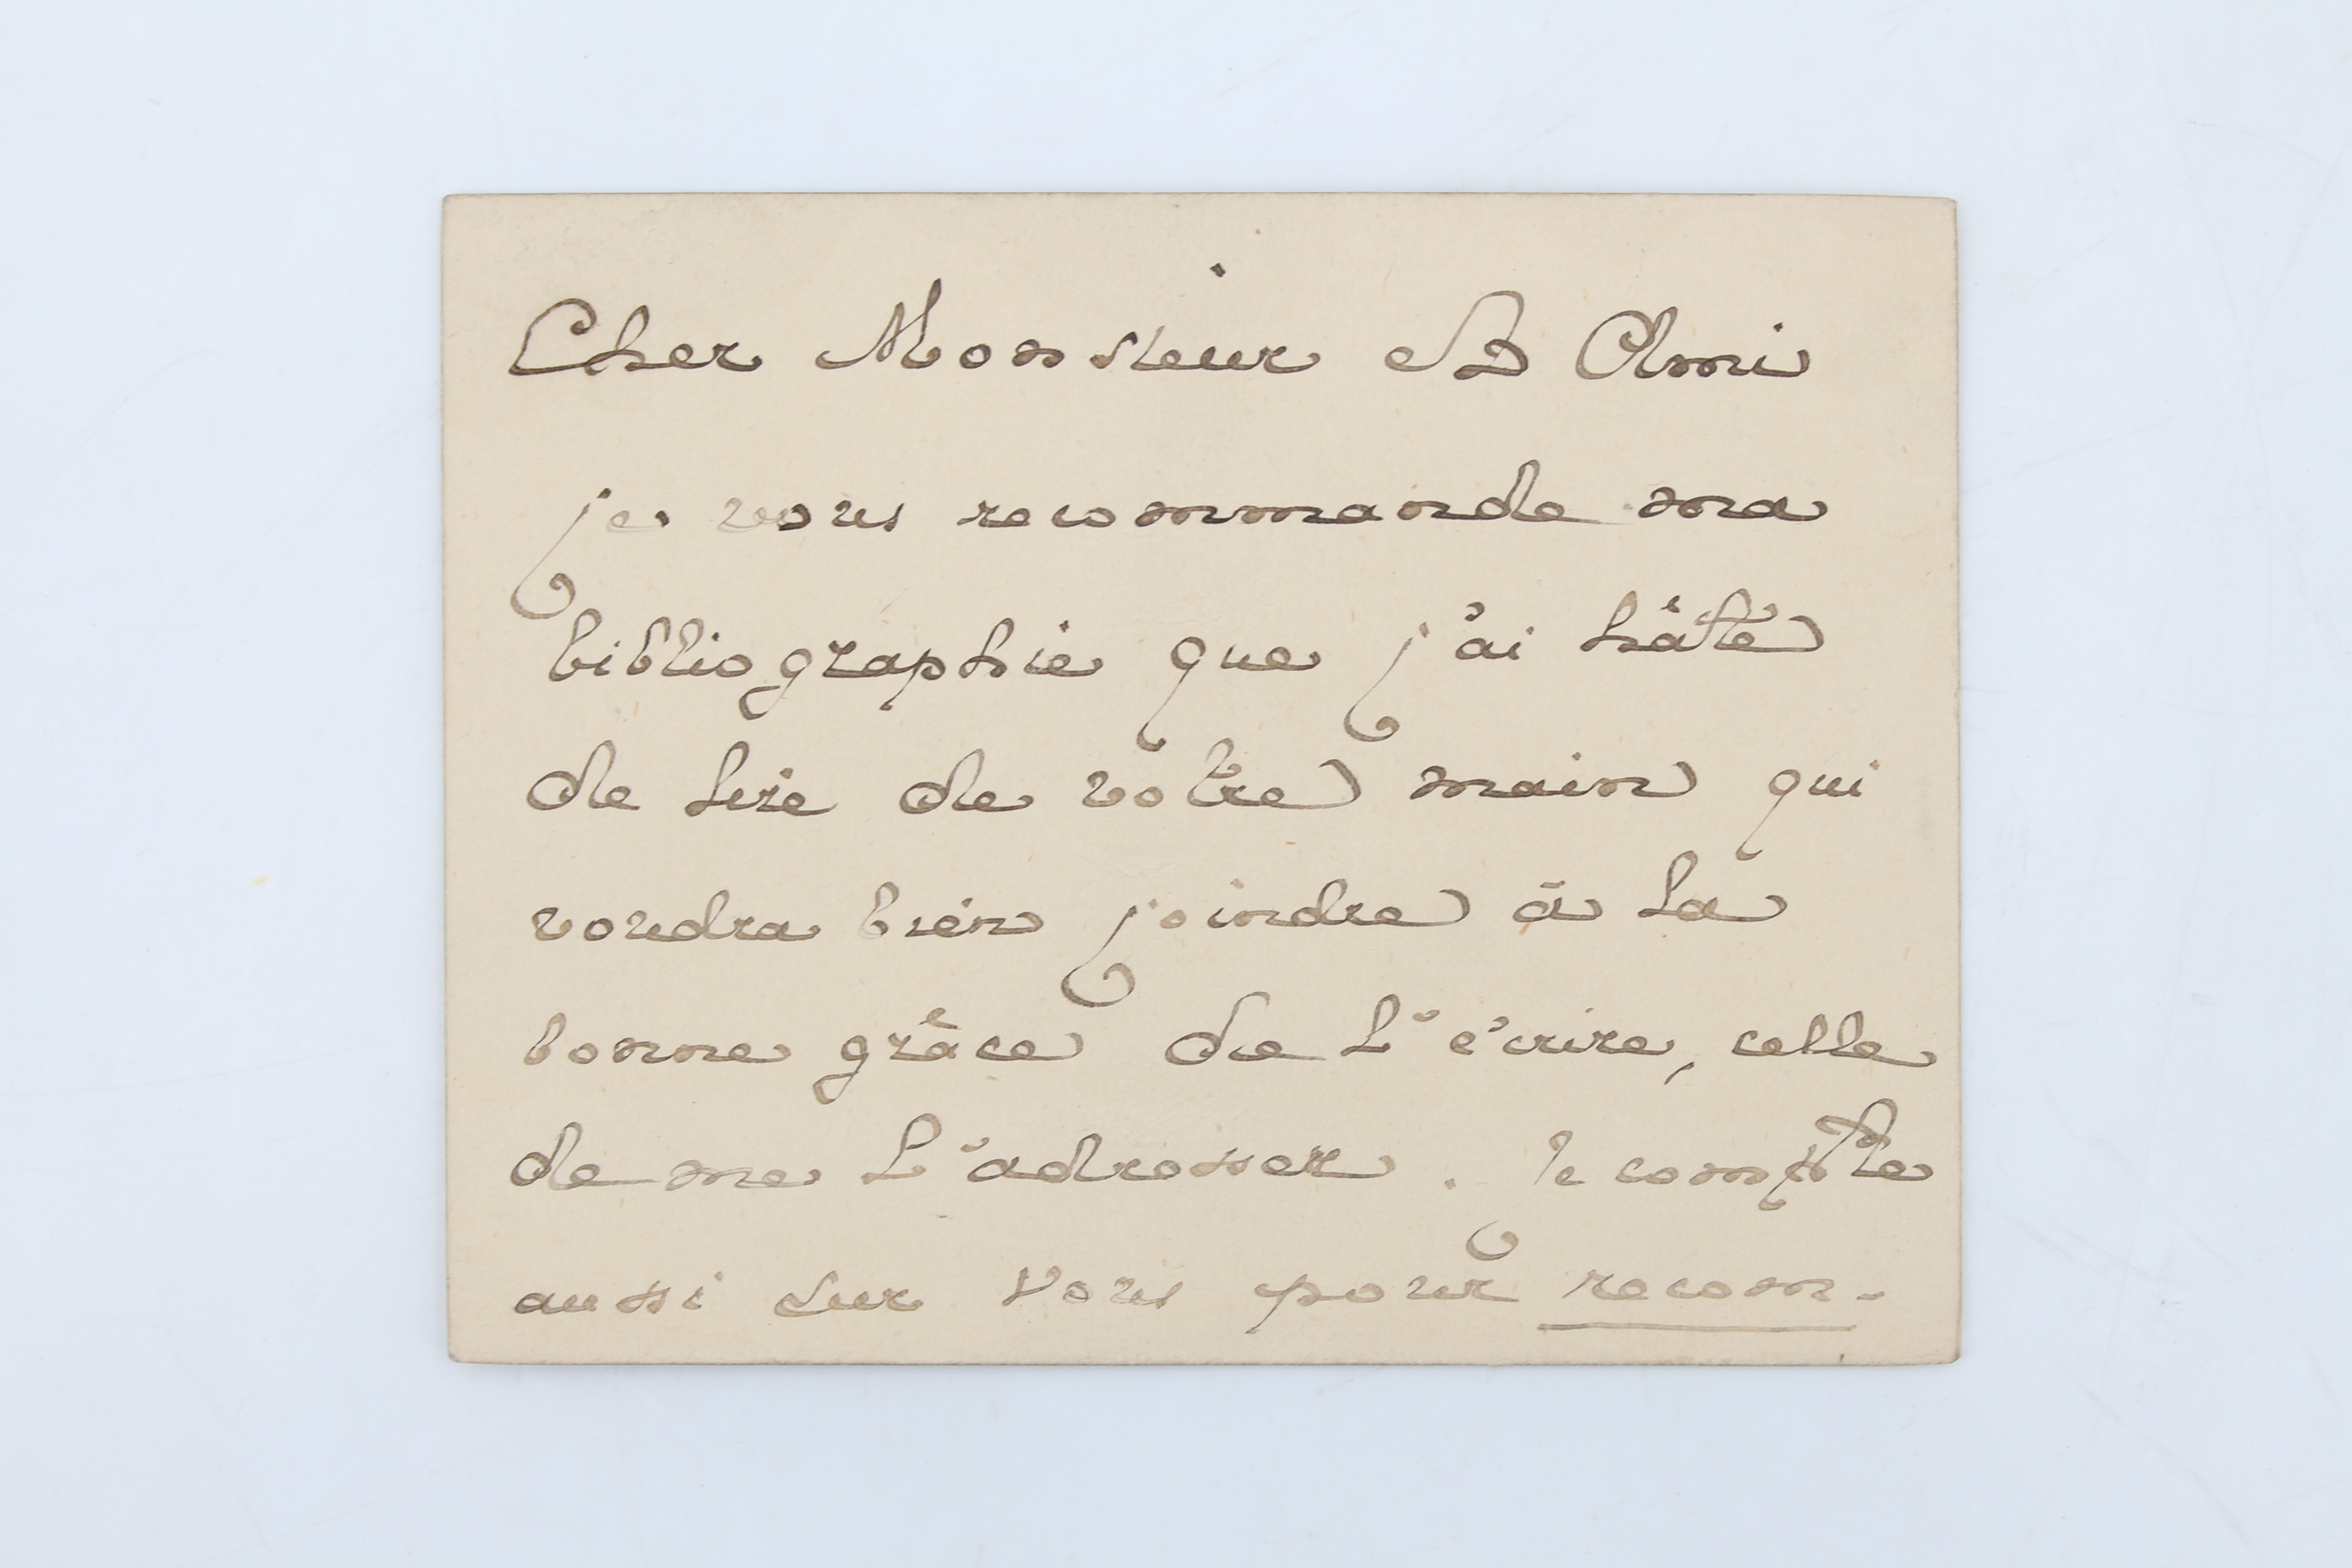 Cher Monsieur Et Ami
je vous recommande ma
bibliographie que j'ai hâte
de lire de votre main qui
voudra bien joindre à la
bonne grâce de l'écrire, celle
de me l'adresser. Je compte
aussi sur vous pour recom-